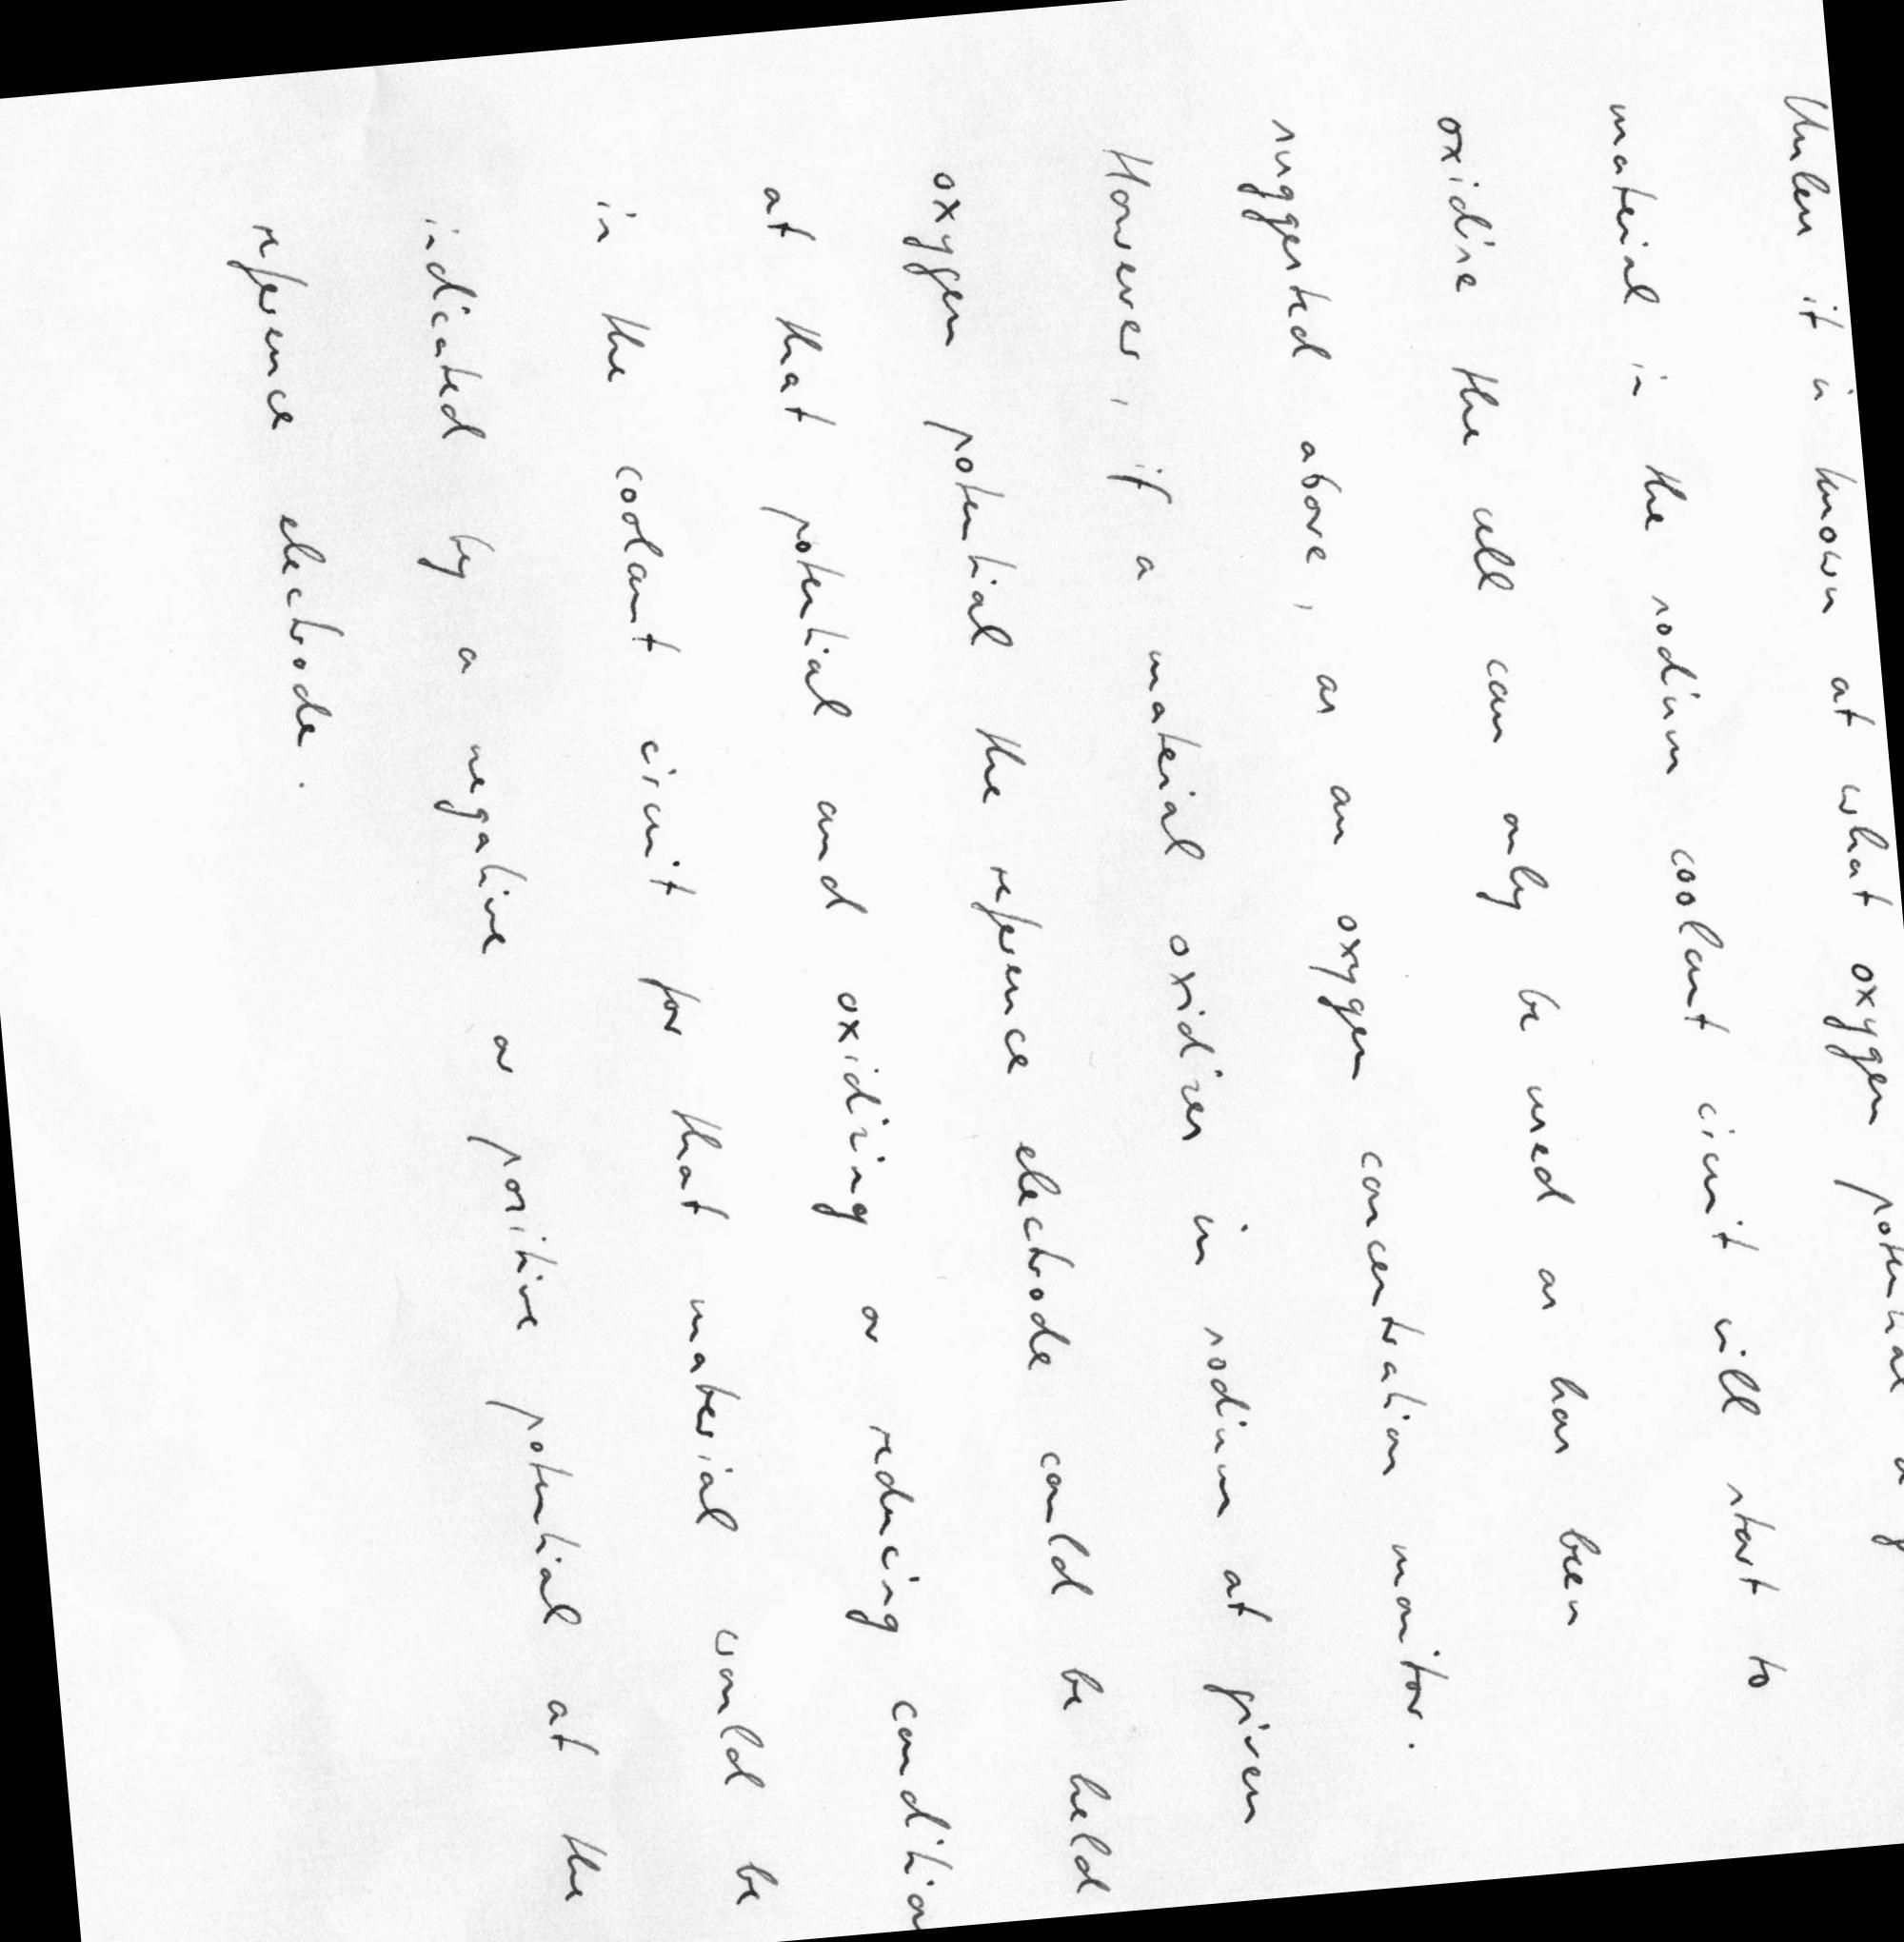 Unless it is known at what oxygen potential a
material in the sodium coolant circuit will start to
oxidise the cell can only be used as has been
suggested above, as an oxygen concentration monitor.
However, if a material oxidizes in sodium at given
oxygen potential the reference electrode could be held
at that potential and oxidizing or reducing condition
in the coolant circuit for that material would be
indicated by a negative or positive potential at the
reference electrode.